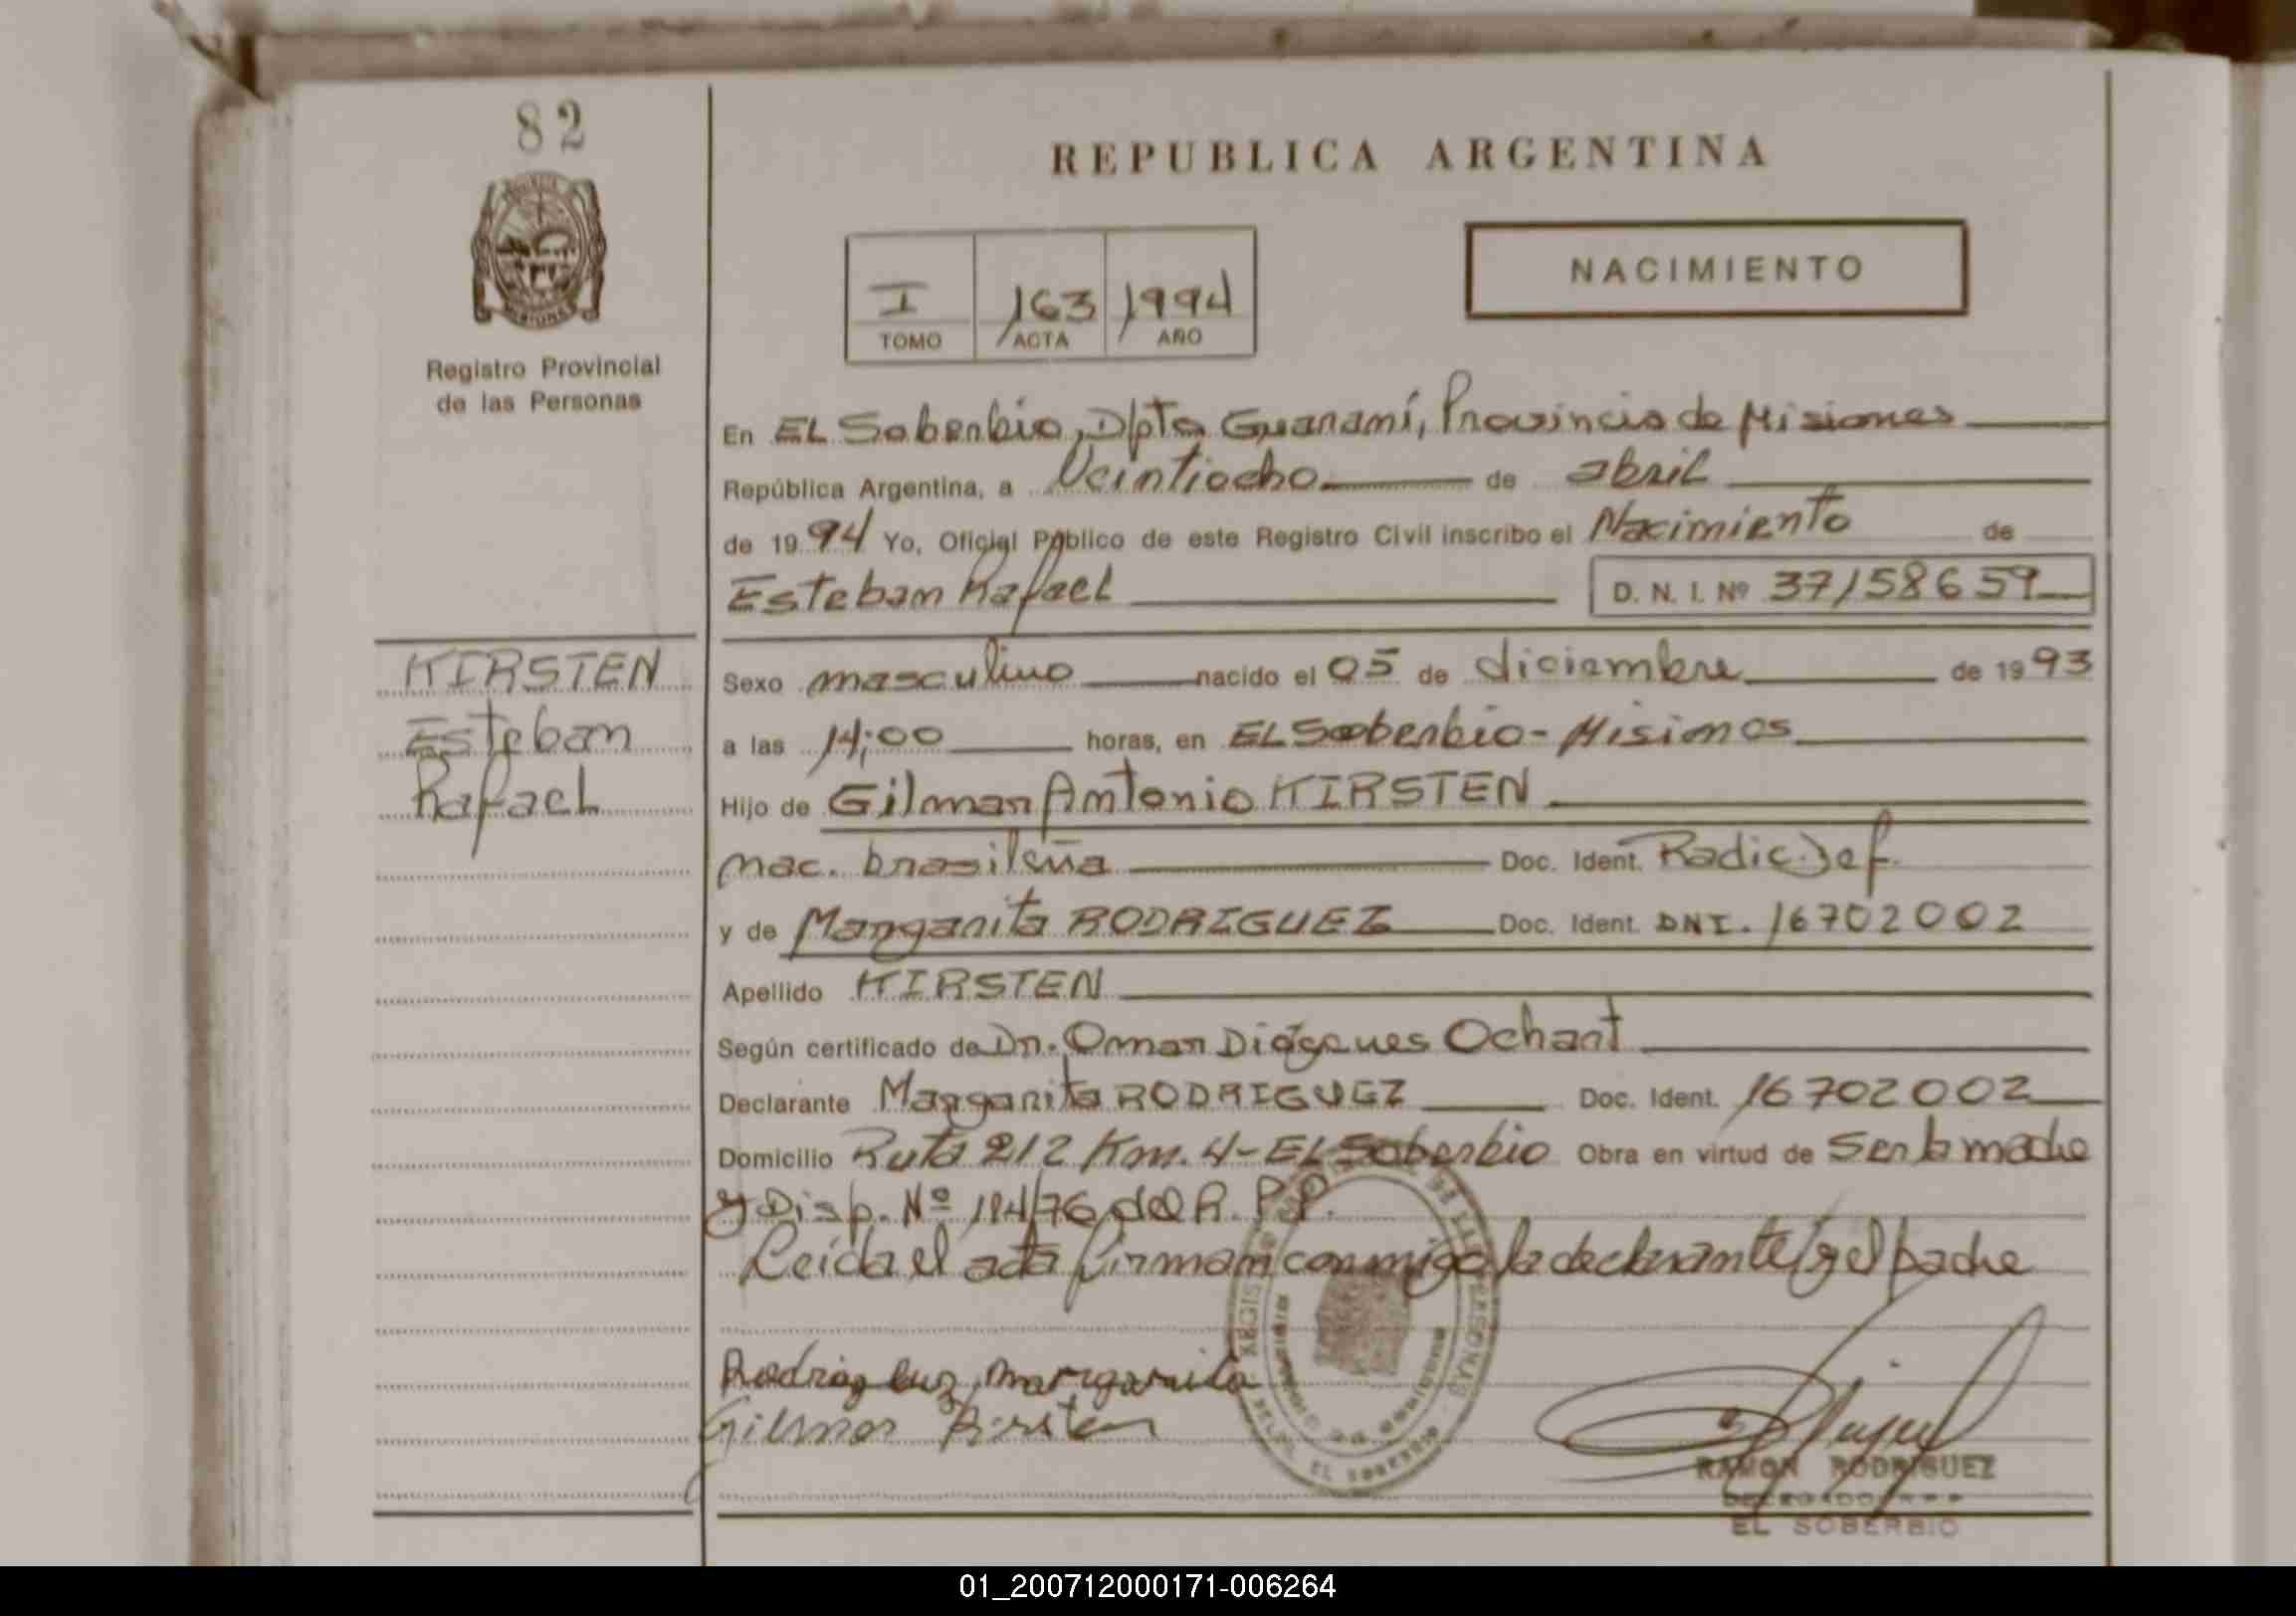 82
REPUBLICA ARGENTINA
NACIMIENTO
I 163 1994
TOMO ACTA AÑO
Registro Provincial
de las Personas
En EL Soberbio, Dpto Guaraní, Provincia de Misiones
República Argentina, a Veintiocho de abril
de 1994 Yo, Oficial Público de este Registro Civil inscribo el Nacimiento de
Esteban Rafael D. N. I. Nº 37158659
KIRSTEN
Esteban
Rafael
Sexo masculino nacido el 05 de diciembre de 1993
a las 14;00 horas, en EL Soberbio - Misiones
Hijo de Gilmar Antonio KIRSTEN
nac. brasileña Doc. Ident. Radic. Def.
y de Margarita RODRIGUEZ Doc. Ident. DNI. 16702002
Apellido KIRSTEN
Según certificado de Dr. Omar Diógenes Ochant
Declarante Margarita RODRIGUEZ Doc. Ident. 16702002
Domicilio Ruta 212 Km. 4 - EL Soberbio Obra en virtud de Ser la madre
y Disp. Nº 194/76 del R. P. P.
Leída el acta firman conmigo la declarante y el padre
Rodriguez Margarita
Gilmar Kirsten
RAMON RODRIGUEZ
DELEGADO R P P
EL SOBERBIO
01_200712000171-006264